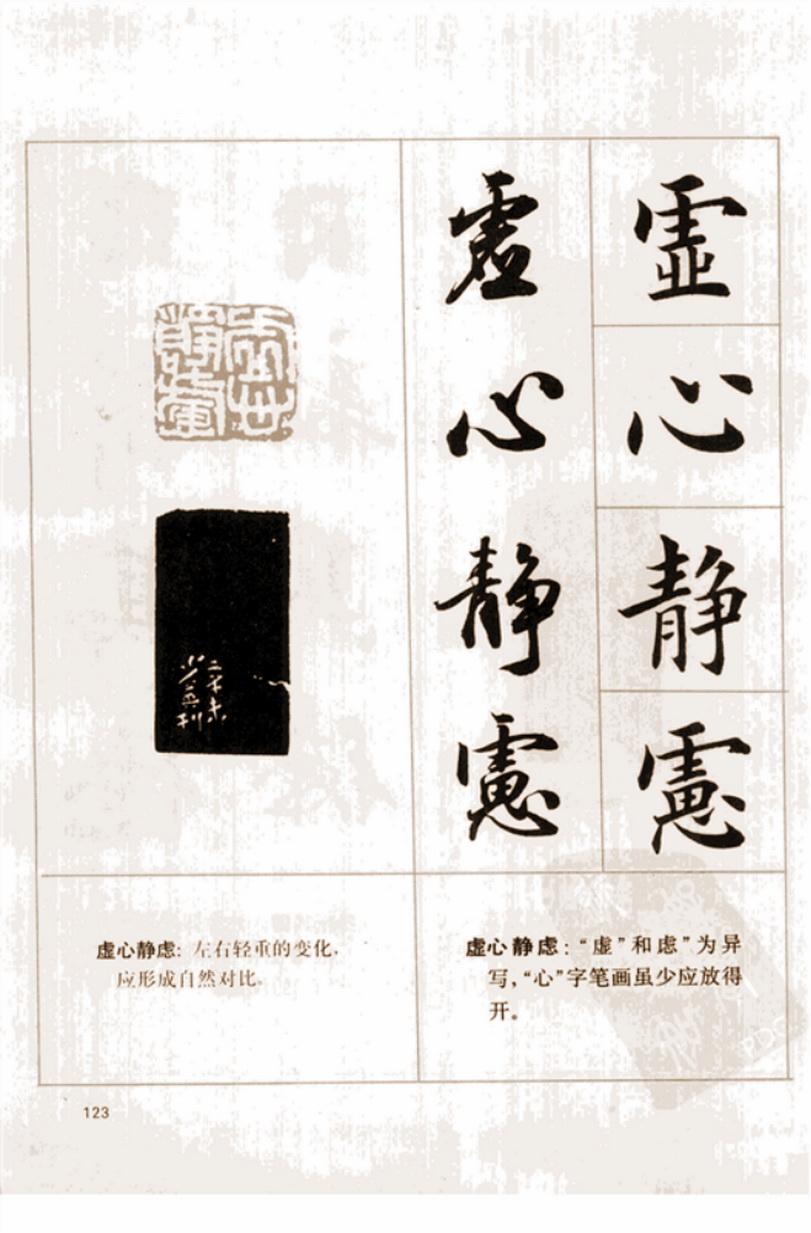 虚
心
静
慮
虚
心
静
慮
虚心静慮
虚心静虑：“虚”和虑”为异
写，“心”字笔画虽少应放得
开。
虚心静虑：左右轻重的变化，
应形成自然对比。
123